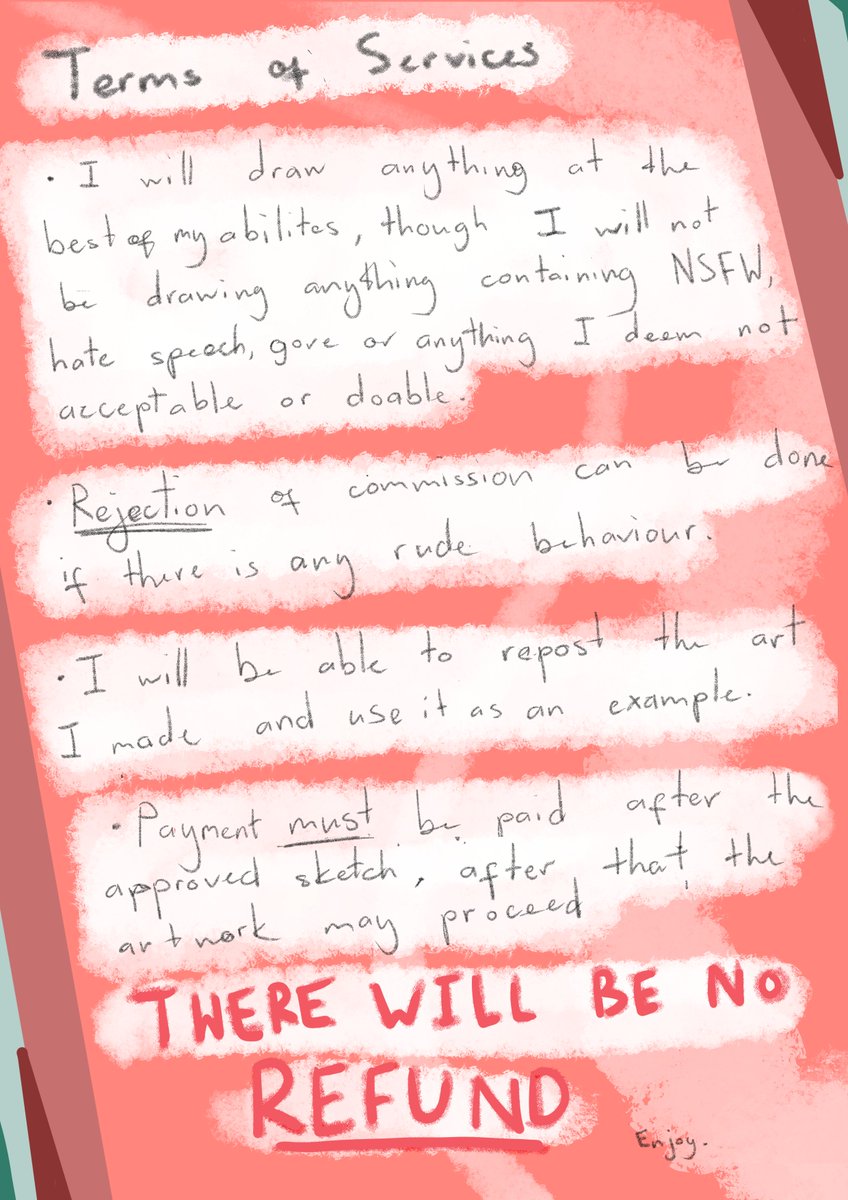 Terms of Services
· I will draw anything at the
best of my abilites, though I will not
be drawing anything containing NSFW,
hate speech, gore or anything I deem not
acceptable or doable.
· Rejection of commission can be done
if there is any rude behaviour.
· I will be able to repost the art
I made and use it as an example.
· Payment must be paid after the
approved sketch, after that the
artwork may proceed
THERE WILL BE NO
REFUND
Enjoy.